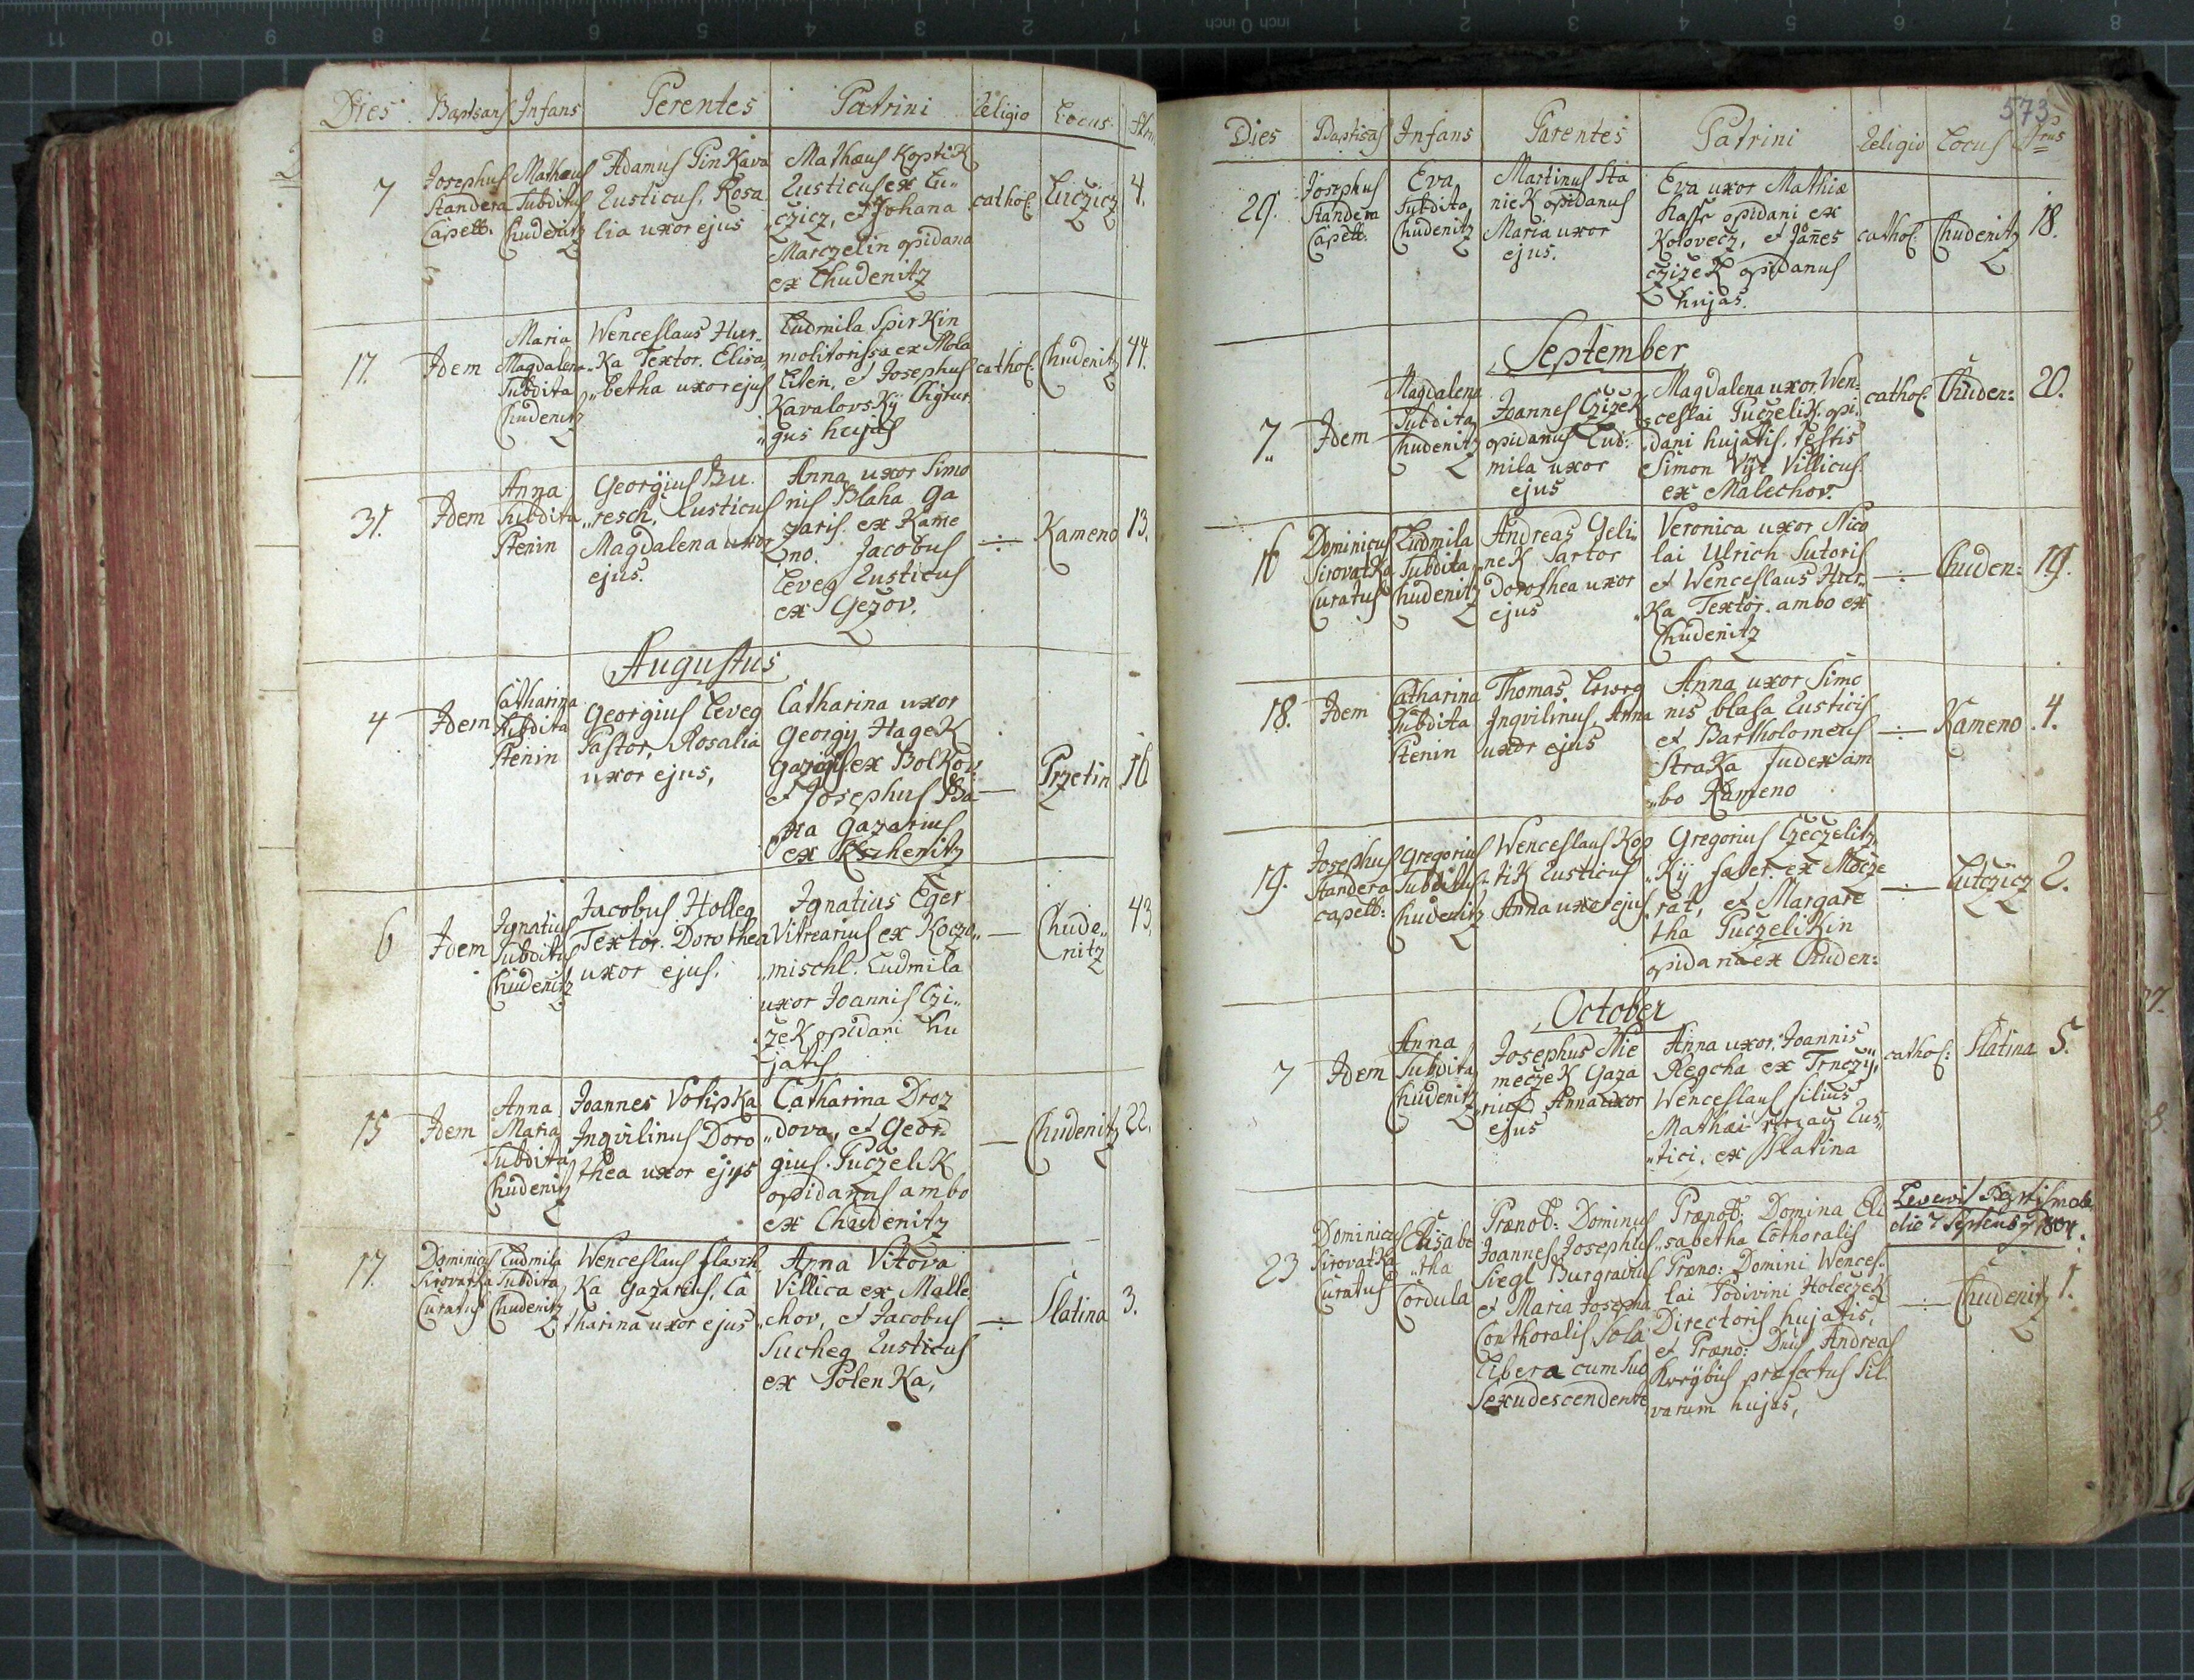 Dies Baptsans Infans Perentes Patrini Religio Locus
7 Josephus Standera Capell. Mathæus Subditus Chudenitz
Adamus Pinkava
Rusticus, Rosa
lia uxor ejus
Mathæus Koptik
Rusticus ex Lu„
czicz, et Johana
Marczelin opidana
ex Chudenitz
cathol: Luczicz 4.
17. Idem
Maria
Magdalena
Subdita
Chudenitz
Wenceslaus Hur„
„ka Textor. Elisa„
„betha uxor ejus
Ludmila Spirkin
molitorissa ex Mola
Lilen, et Josephus
Kavalovskÿ Chÿrur„
„gus hujas
cathol: Chudenitz 44.
31. Idem
Anna
Subdita
Ptenin
Georgius Bu„
„resch, Rusticus
Magdalena uxor
ejus.
Anna uxor Simo
nis Blaha Ga
zaris. ex Kame
no. Jacobus
Leveg Rusticus
ex Gezov.
–:– Kameno 13.
Augustus
4 Idem
Catharina
Subdita
Ptenin
Georgius Leveg
Pastor, Rosalia
uxor ejus,
Catharina uxor
Georgÿ Hagek
ex Bolkov.
et Josephus
Gazarius
— Przetin 16
6 Idem
Ignatius
Subditus
Chudenitz
Jacobus Holleg
Textor. Dorothea
uxor ejus.
Ignatius Eger
Vitrearius ex Koczo„
„mischl. Ludmila
uxor Joannis Czi„
zek opidani hu
jatis
— Chude„
nitz 43.
15 Idem
Anna
Maria
Subdita
Chudenitz
Joannes Votipka
Inqvilinus Doro
thea uxor ejus
Catharina Droz
„dova, et Geor„
gius Puczelik
opidanus ambo
ex Chudenitz
— Chudenitz 22.
17.
Dominicus
Sirovatka
Curatus
Ludmila
Subdita
Chudenitz
Wenceslaus Flasch
ka Gazarius, Ca
tharina uxor ejus
Anna Vitova
Villica ex Malle
„chov, et Jacobus
Sucheg Rusticus
ex Polenka,
–:– Slatina 3.
573
Dies Baptisans Infans Parentes Patrini Religio Locus
29.
Josephus
Standera
Capell.
Eva
Subdita
Chudenitz
Martinus Sta
niek opidanus
Maria uxor
ejus.
Eva uxor Mathiæ
Hasse opidani ex
Kolovecz, et Jões
Czizek opidanus
hujas.
cathol: Chudenitz 18.
September
7„ Idem
Magdalena
Subdita
Chudenitz
Joannes Czizek
opidanus Lud:
mila uxor
ejus
Magdalena uxor Wen:
ceslai Puczelik opi„
dani hujatis. testis
Simon Vÿt Villicus
ex Malechov.
cathol: Chuden: 20.
16
Dominicus
Sirovatka
Curatus
Ludmila
Subdita
Chudenitz
Andreas Geli„
„nek Sartor
Dorothea uxor
ejus
Veronica uxor Nico
lai Ulrich Sutoris
et Wenceslaus Hur„
„ka Textor. ambo ex
Chudenitz
–:– Chuden: 19.
18. Idem
Catharina
Subdita
Ptenin
Thomas Leweg
Inqvilinus, Anna
uxor ejus
Anna uxor Simo
nis blaha Rusticis
et Bartholomeus
Straka Judex am
„bo Kameno
–:– Kameno 4.
19.
Josephus
Standera
capell:
Gregorius
Subditus
Chudenitz
Wenceslaus Kop
„tik Rusticus
Anna uxor ejus
Gregorius Czeczelitz
„kÿ faber ex Mocze
rat, et Margare
tha Puczelikin
opidana ex Chuden:
–:– Lutczicz 2.
October
7 Idem
Anna
Subdita
Chudenitz
Josephus Nie
meczek Gaza
rius Anna uxor
ejus
Anna uxor Joannis
Regcha ex Trnczÿ,
Wenceslaus filius
Mathæi Rus„
„tici, ex Slatina
cathol: Slatina 5.
23
Dominicus
Sirovatka
Curatus
Elisabe
„tha
Cordula
Prænob: Dominus
Joannes Josephus
Siegl Burgravius
et Maria Josepha
Conthoralis Sola
Libera cum suo
Sexu descendente
Prænob: Domina Eli
„sabetha Cothoralis
Præno: Domini Wences„
lai Podivini Holeczek
Directoris hujatis,
et Præno: Dnus Andreas
præfectus Sil
varum hujas,
die 7 Septemb 1804.
–:– Chudenitz 1.